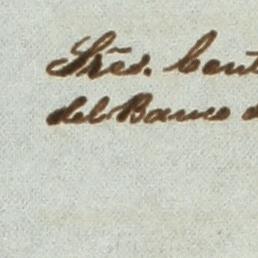 Sres. Cent
del Banco d